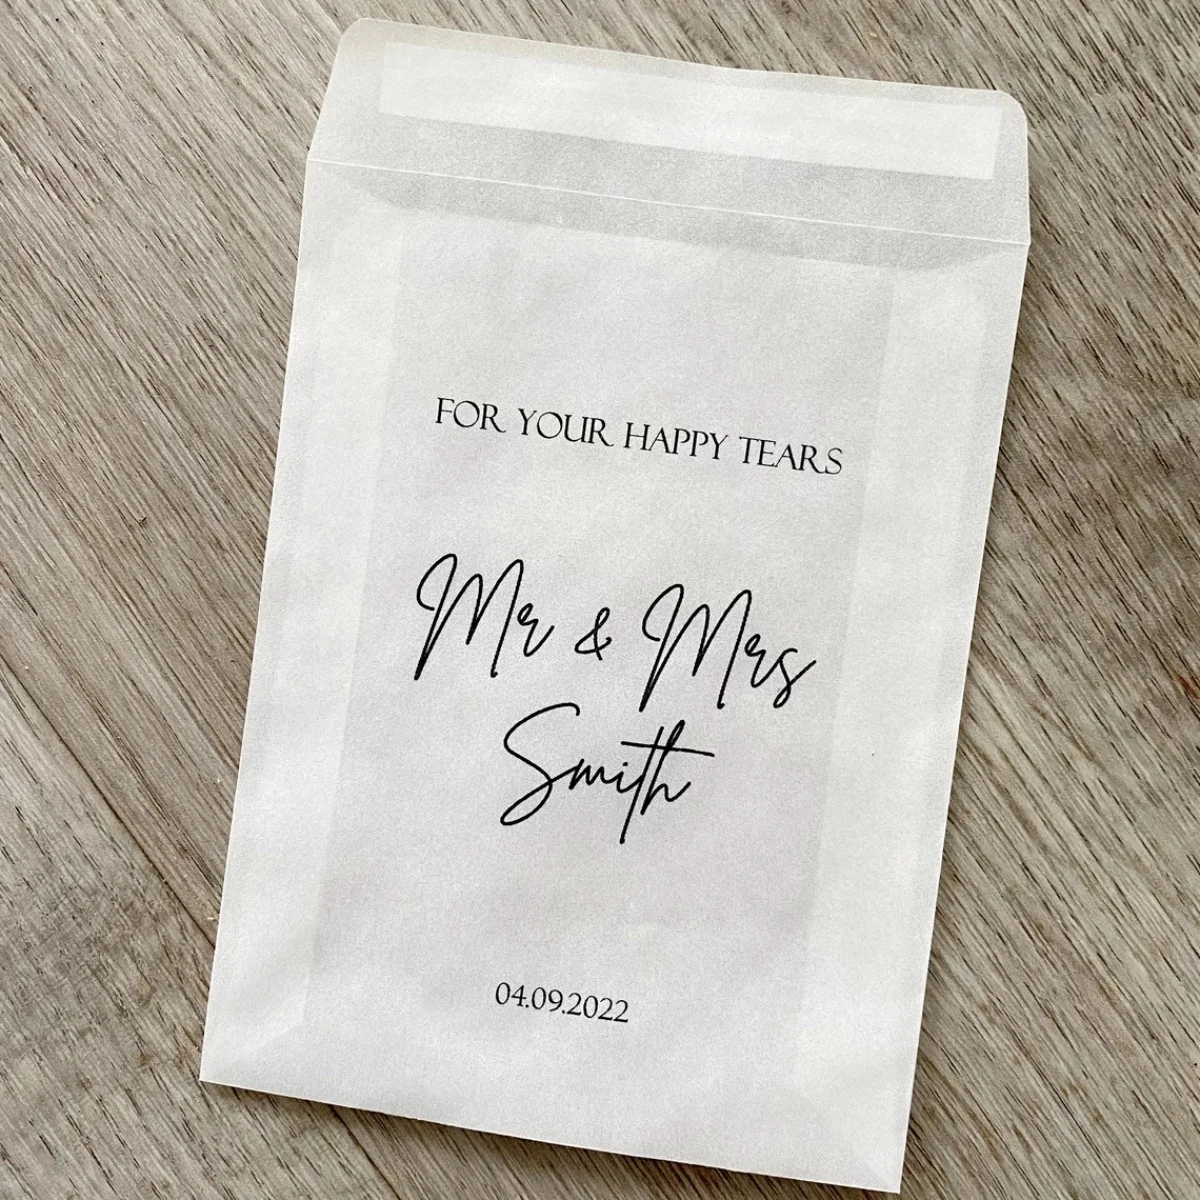 FOR YOUR HAPPY TEARS
Mr & Mrs
Smith
04.09.2022